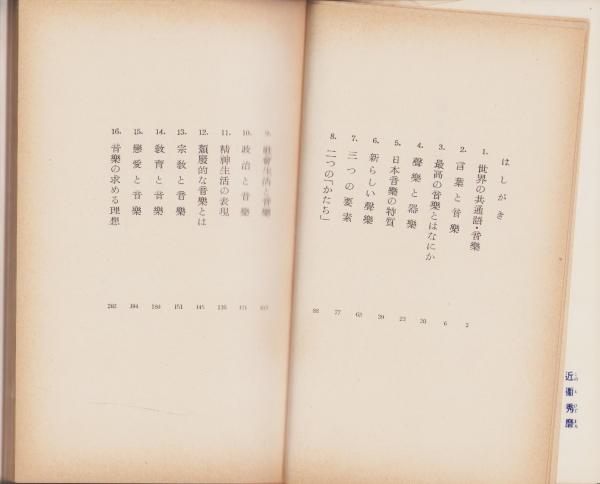 はしがき
1. 世界の共通語・音樂 2
2. 言葉と音樂 6
3. 最高の音樂とはなにか 20
4. 聲樂と器樂 23
5. 日本音樂の特質 39
6. 新らしい聲樂 62
7. 三つの要素 77
8. 二つの「かたち」 88
9. 社會生活と音樂
10. 政治と音樂
11. 精神生活の表現
12. 頽廢的な音樂とは 145
13. 宗敎と音樂 151
14. 敎育と音樂 184
15. 戀愛と音樂 194
16. 音樂の求める理想 202
近衞秀麿